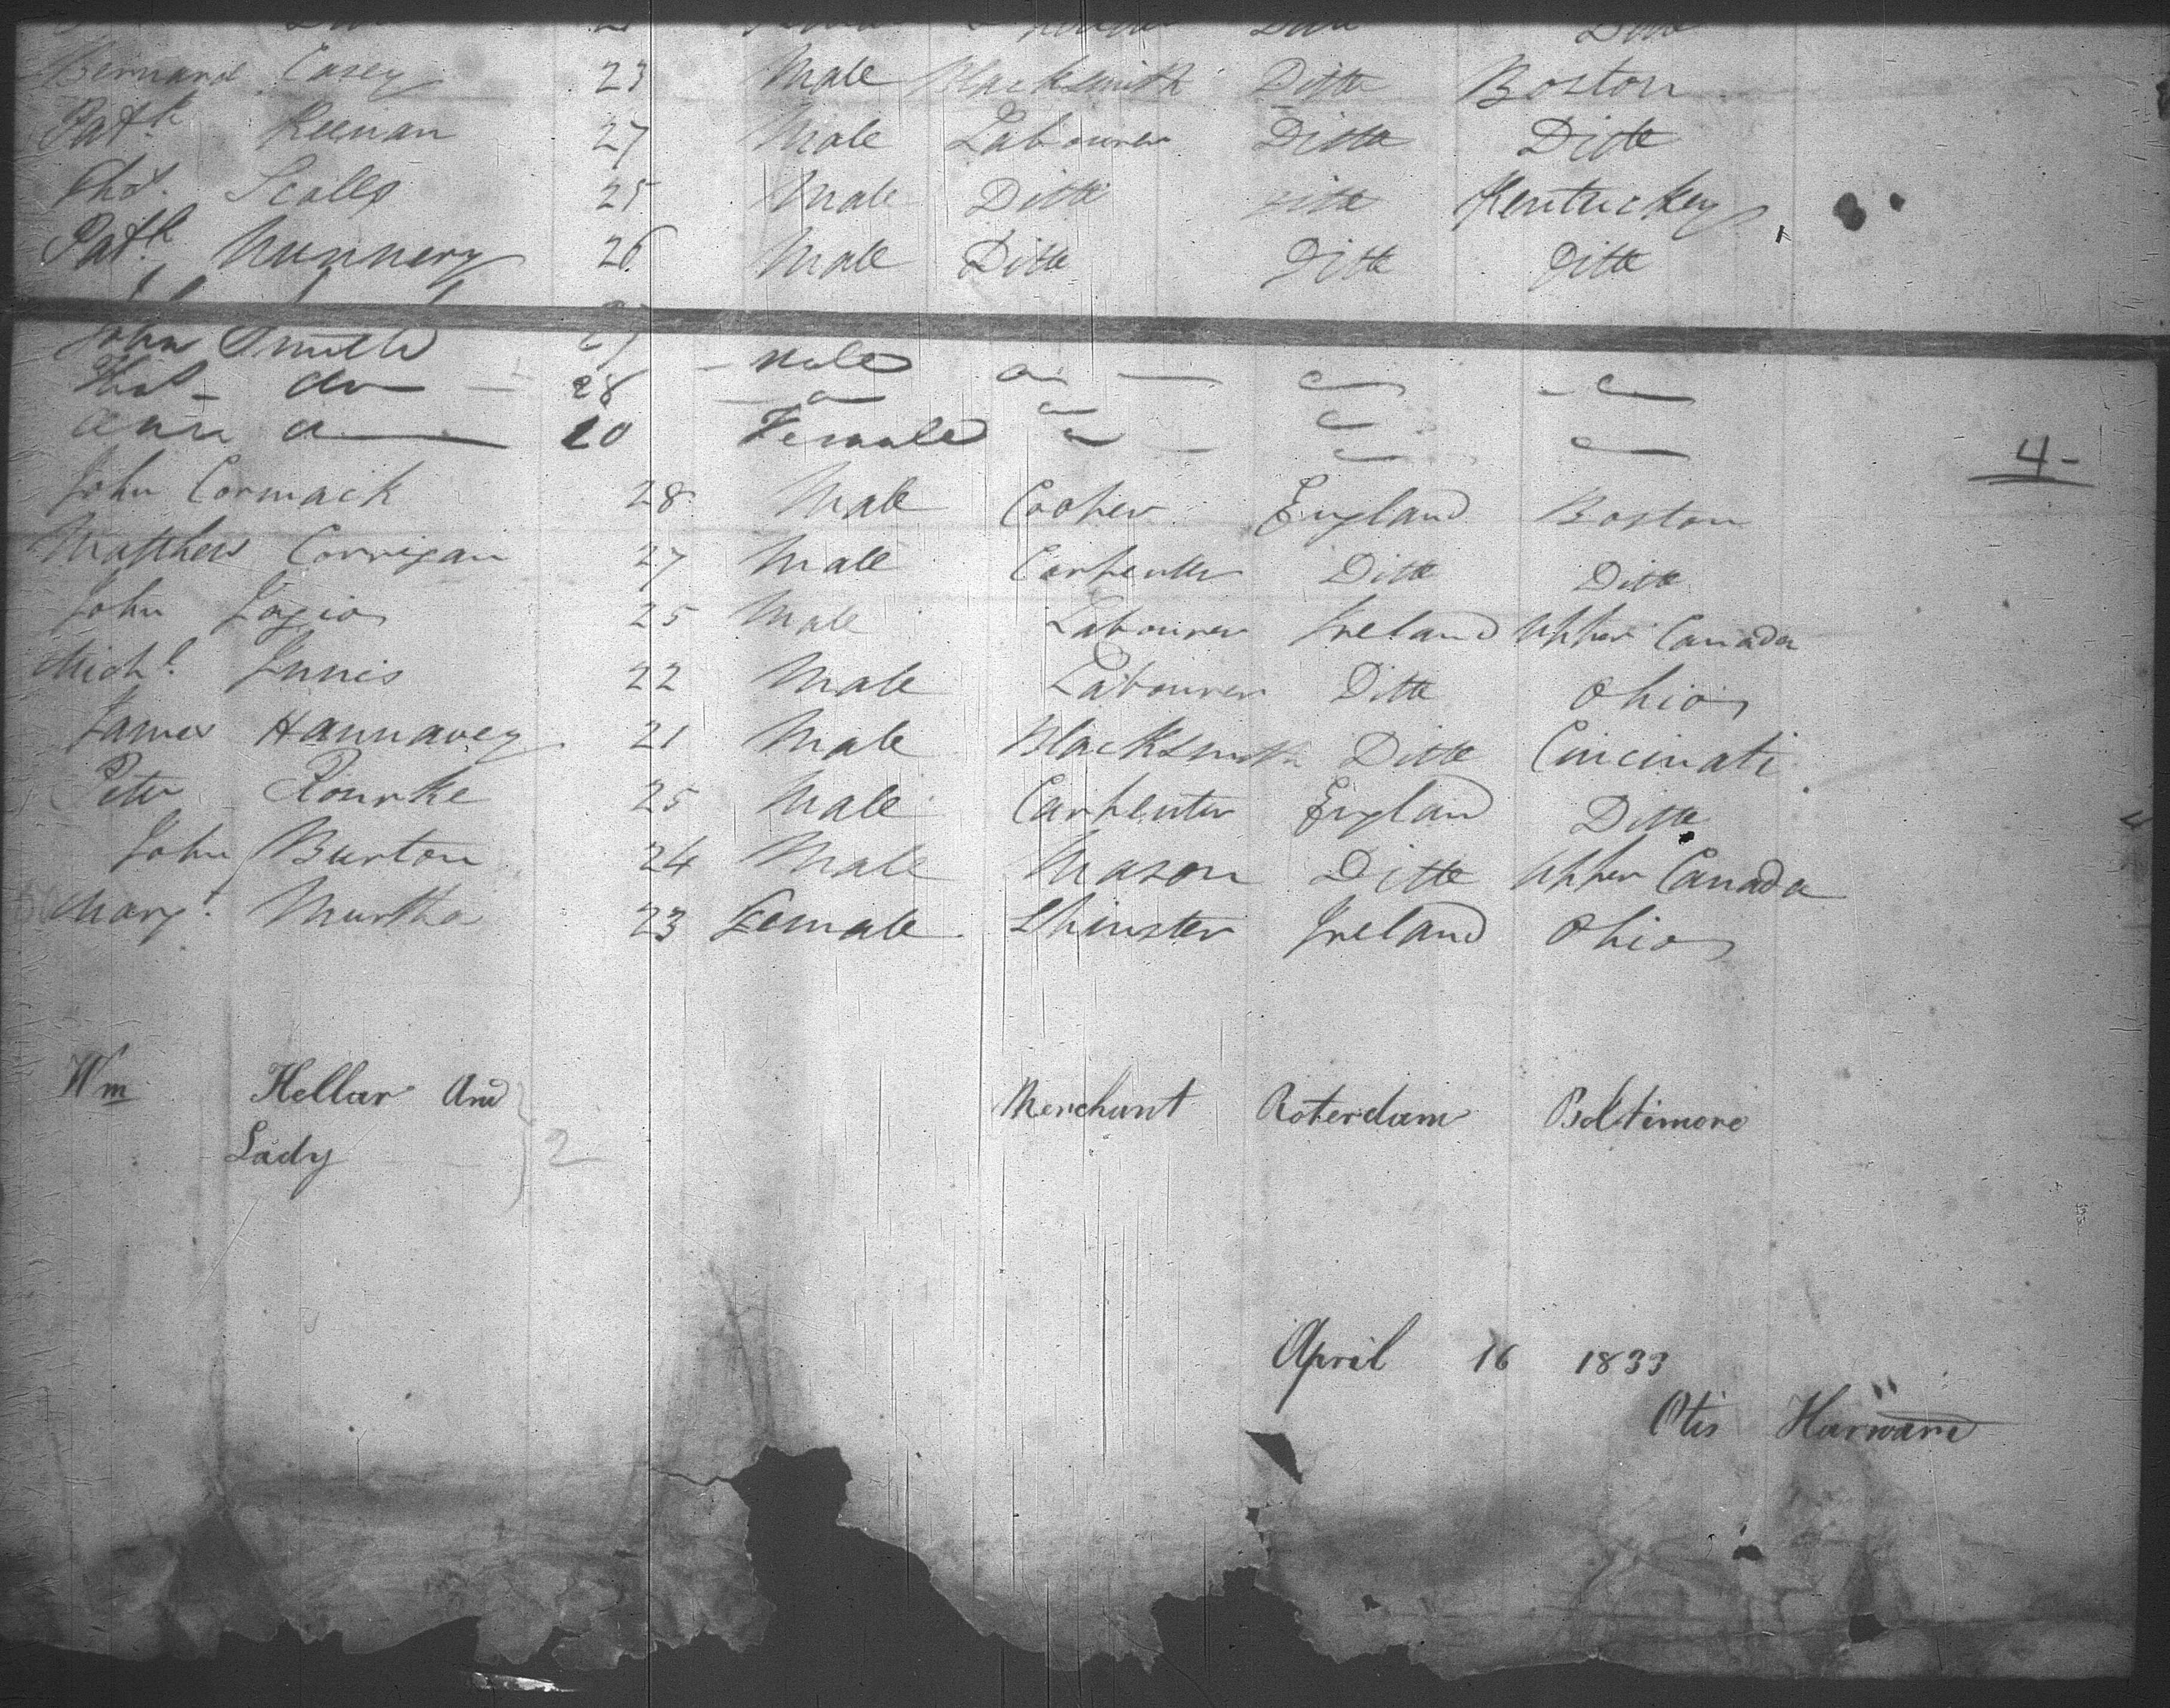 Ditto
Bernard Casey 23 Male Blacksmith Ditto Boston
Patk. Keenan 27 Male Labourer Ditto Ditto
Thos. Scally 25 Male Ditto Ditto Kentuckey
Patk. Nunnery 26 Male Ditto Ditto Ditto
John Smith - Male
Thos - do - 28
Ann 20 Female
4-
John Cormack 28 Male Cooper England Boston
Matthew Corrigan 27 Male Carpenter Ditto Ditto
John 25 Male Labourer Ireland Upper Canada
Michl. Innis 22 Male Labourer Ditto Ohio
James Hannavey 21 Male Blacksmith Ditto Cincinati
Peter Rourke 25 Male Carpenter England Ditto
John Burton 24 Male Mason Ditto Upper Canada
Margt. Murtha 23 Female Spinster Ireland Ohio
Wm Hellar And Merchant Roterdam Baltimore
Lady 2
April 16 1833
Otis Harward